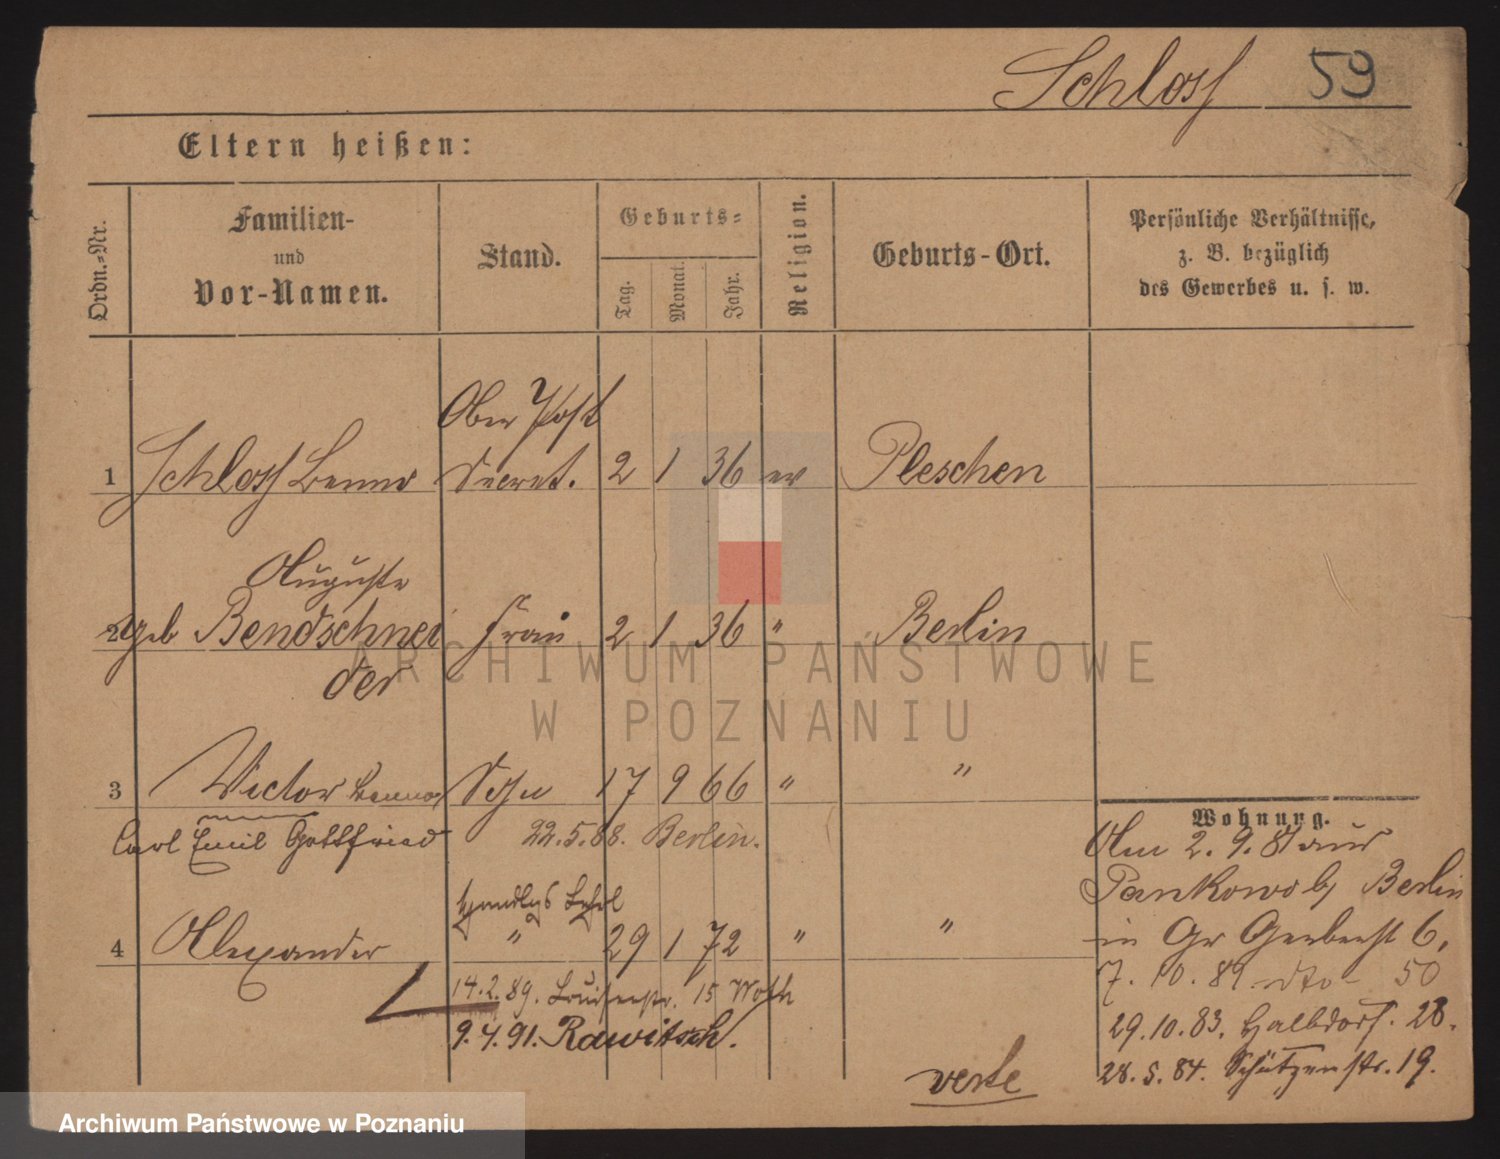 Schloss 59
Eltern heißen:
Ordn.-Nr.
Familien-
und
Vor-Namen.
Stand.
Geburts-
Tag.
Monat.
Jahr.
Religion.
Geburts-Ort.
Persönliche Verhältnisse,
z. B. bezüglich
des Gewerbes u. s. w.
Ober Post
1 Schloss Benno Secret. 2 1 36 ev Pleschen
Auguste
2 geb Bendschnei Frau 2 1 36 " Berlin
der
3 Victor Benno Sohn 17 9 66 " "
Carl Emil Gottfried 22.5.88. Berlin.
Handlgs Lehrl
4 Alexander " 29 1 72 " "
14.2.89. Louisenstr. 15 Woth
9.4.91. Rawitsch.
Wohnung.
Am 2. 9. 81 aus
Pankow b/ Berlin
in Gr Gerberst 6,
7. 10. 81 dto - 50
29.10.83. Halbdorf. 28.
28. 5. 84. Schützenstr. 19.
verte
ARCHIWUM PAŃSTWOWE
W POZNANIU
Archiwum Państwowe w Poznaniu